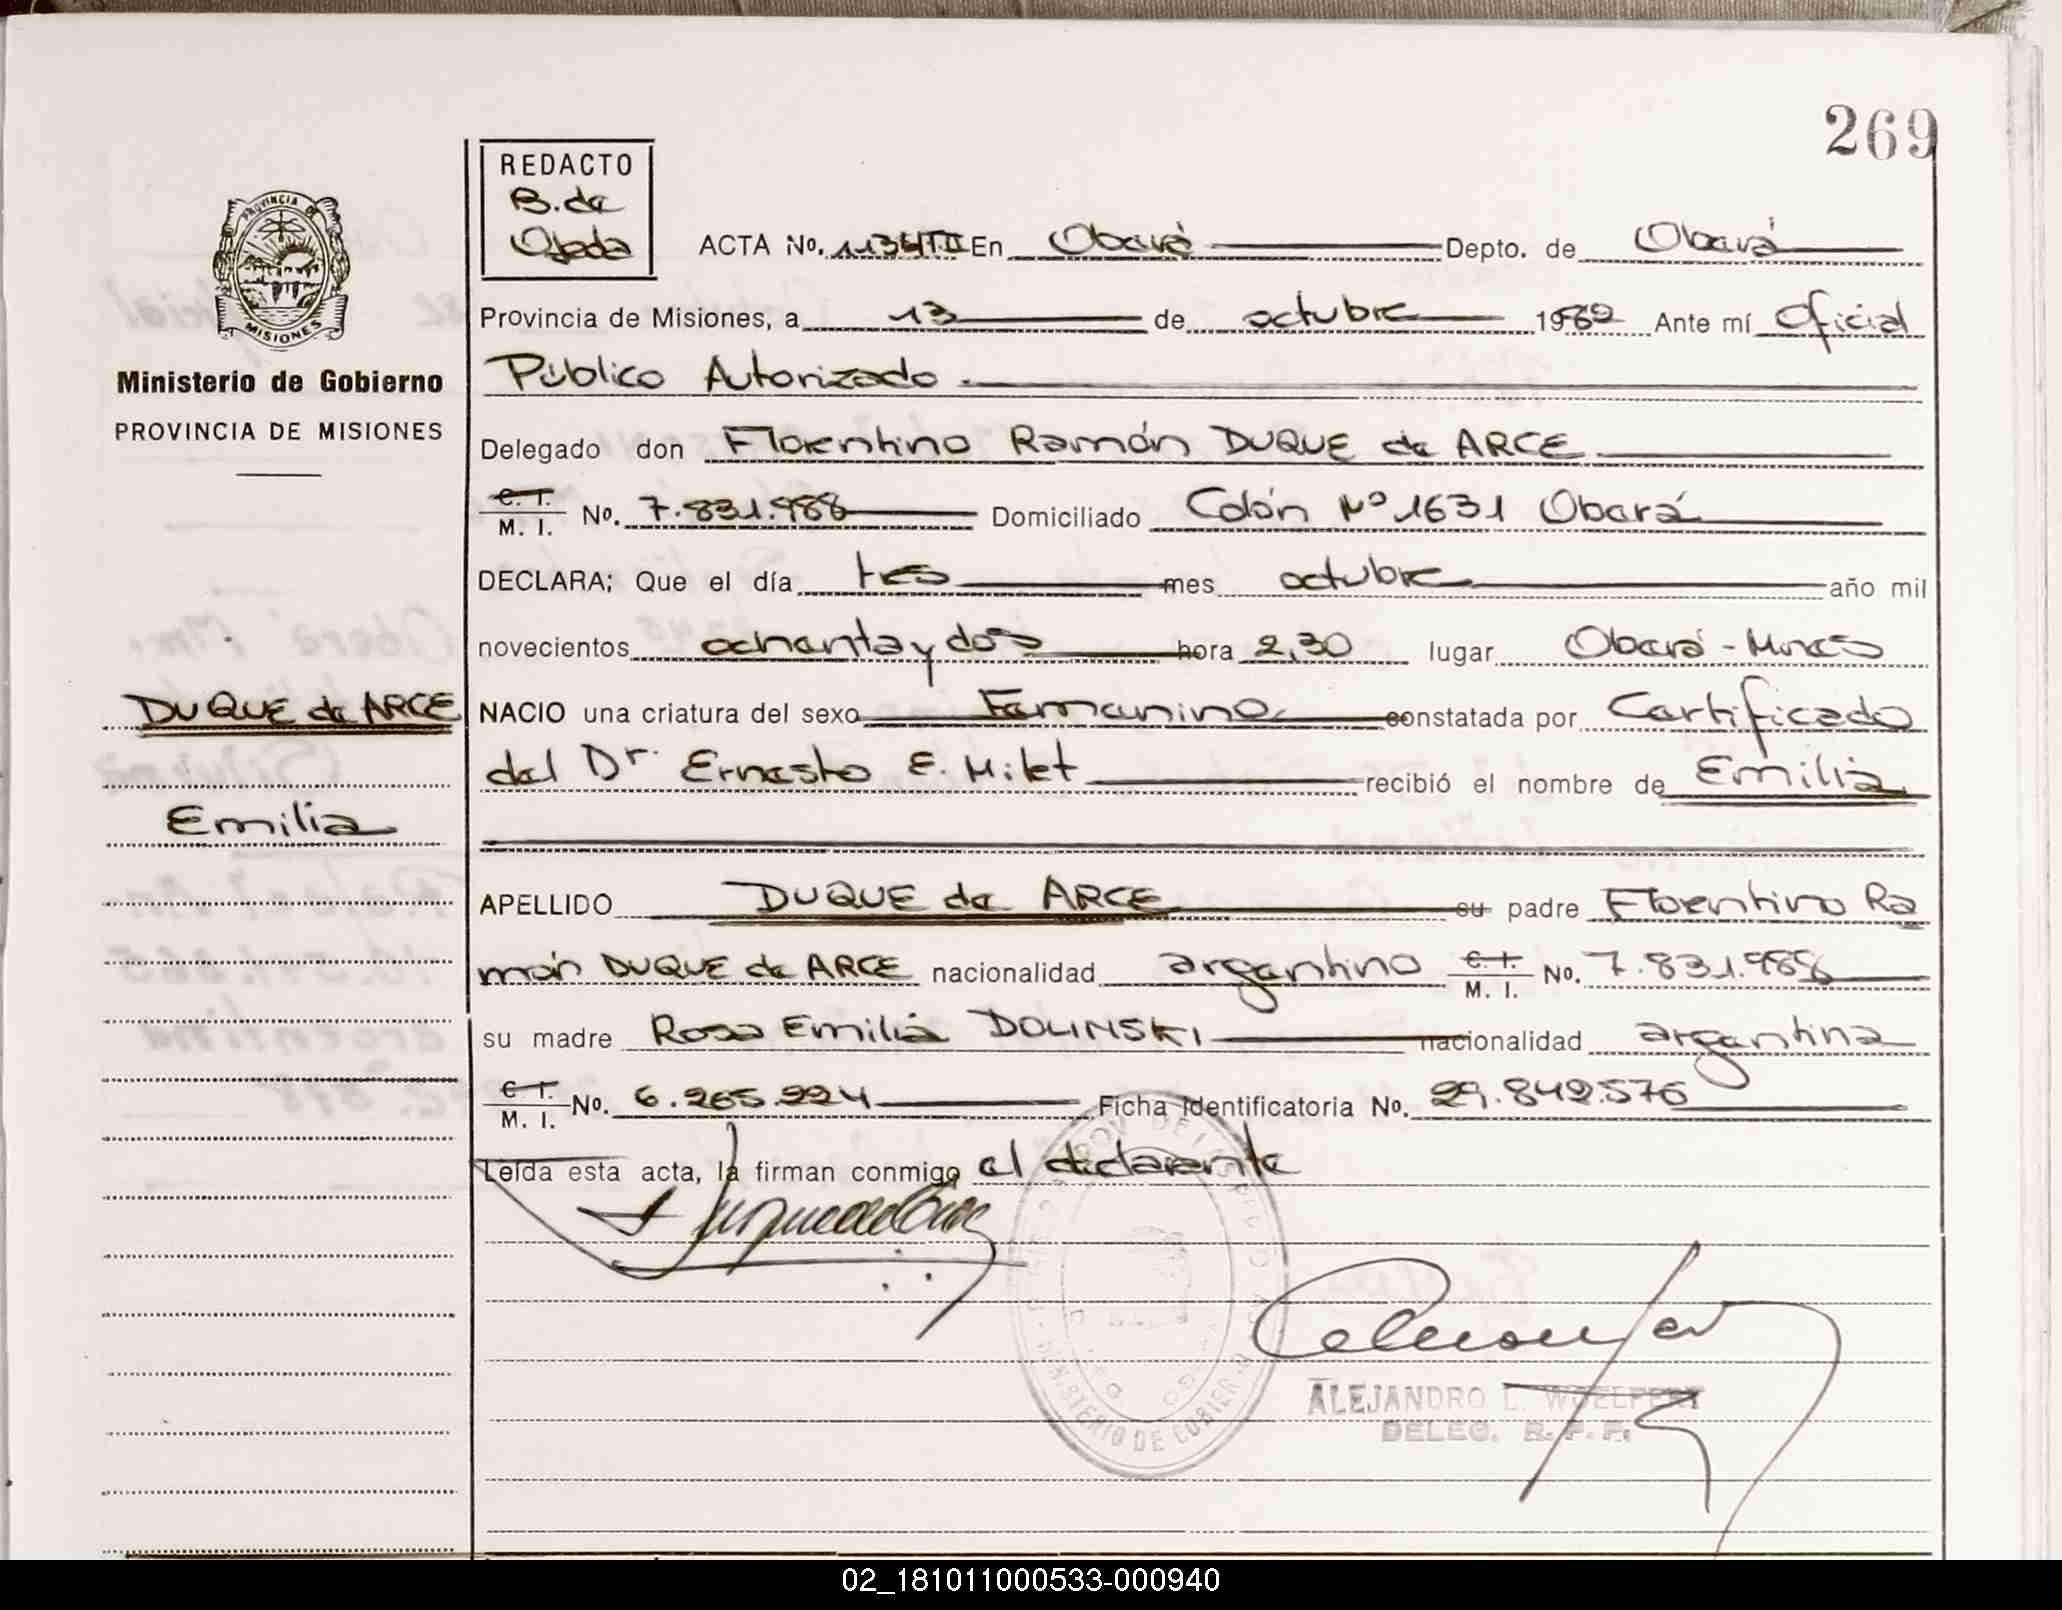 269
REDACTO
B. de
Ojeda
PROVINCIA DE
MISIONES
Ministerio de Gobierno
PROVINCIA DE MISIONES
ACTA No. 1134TII En Oberá Depto. de Oberá
Provincia de Misiones, a 13 de octubre 1982 Ante mí Oficial
Público Autorizado.
Delegado don Florentino Ramón DUQUE de ARCE
C. I.
M. I. No. 7.831.988 Domiciliado Colón Nº 1631 Oberá
DECLARA; Que el día tres mes octubre año mil
novecientos ochenta y dos hora 2,30 lugar Oberá - Mnes
DUQUE de ARCE
NACIO una criatura del sexo Femenino constatada por Certificado
del Dr. Ernesto E. Milet recibió el nombre de Emilia
Emilia
APELLIDO DUQUE de ARCE su padre Florentino Ra
món DUQUE de ARCE nacionalidad argentino C. I.
M. I. No. 7.831.988
su madre Rosa Emilia DOLINSKI nacionalidad argentina
C. I.
M. I. No. 6.265.224 Ficha Identificatoria No. 29.842.576
Leída esta acta, la firman conmigo el declarante
MINISTERIO DE GOBIERNO
ALEJANDRO L. WOELFERT
DELEG. R. P. P.
02_181011000533-000940